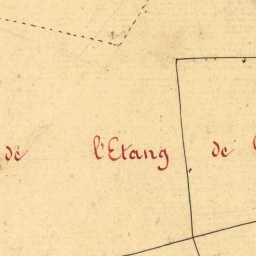 de l'Etang de